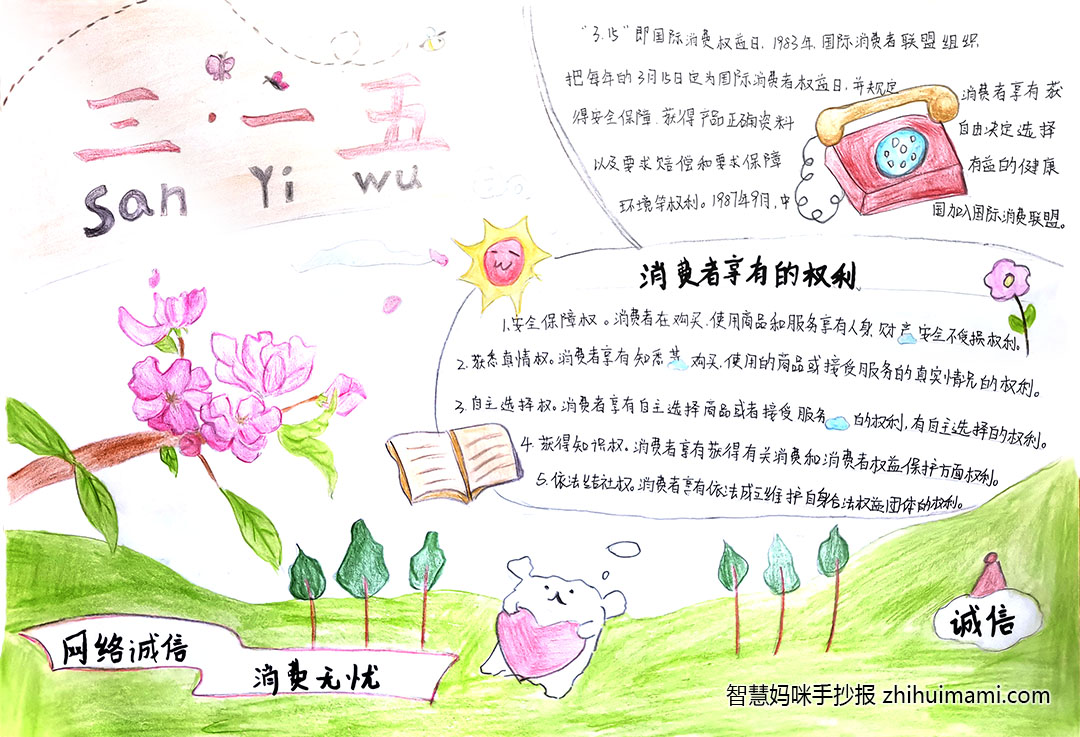 三·一五
San Yi wu
“3.15”即国际消费权益日，1983年，国际消费者联盟组织，
把每年的3月15日定为国际消费者权益日，并规定 消费者享有获
得安全保障、获得产品正确资料 自由决定选择
以及要求赔偿和要求保障 有益的健康
环境等权利。1987年9月，中 国加入国际消费联盟。
消费者享有的权利
1.安全保障权。消费者在购买、使用商品和服务享有人身、财产安全不受损权利。
2.获悉真情权。消费者享有知悉其购买、使用的商品或接受服务的真实情况的权利。
3.自主选择权。消费者享有自主选择商品或者接受服务的权利，有自主选择的权利。
4.获得知识权。消费者享有获得有关消费和消费者权益保护方面权利。
5.依法结社权。消费者享有依法成立维护自身合法权益团体的权利。
网络诚信
消费无忧
诚信
智慧妈咪手抄报 zhihuimami.com